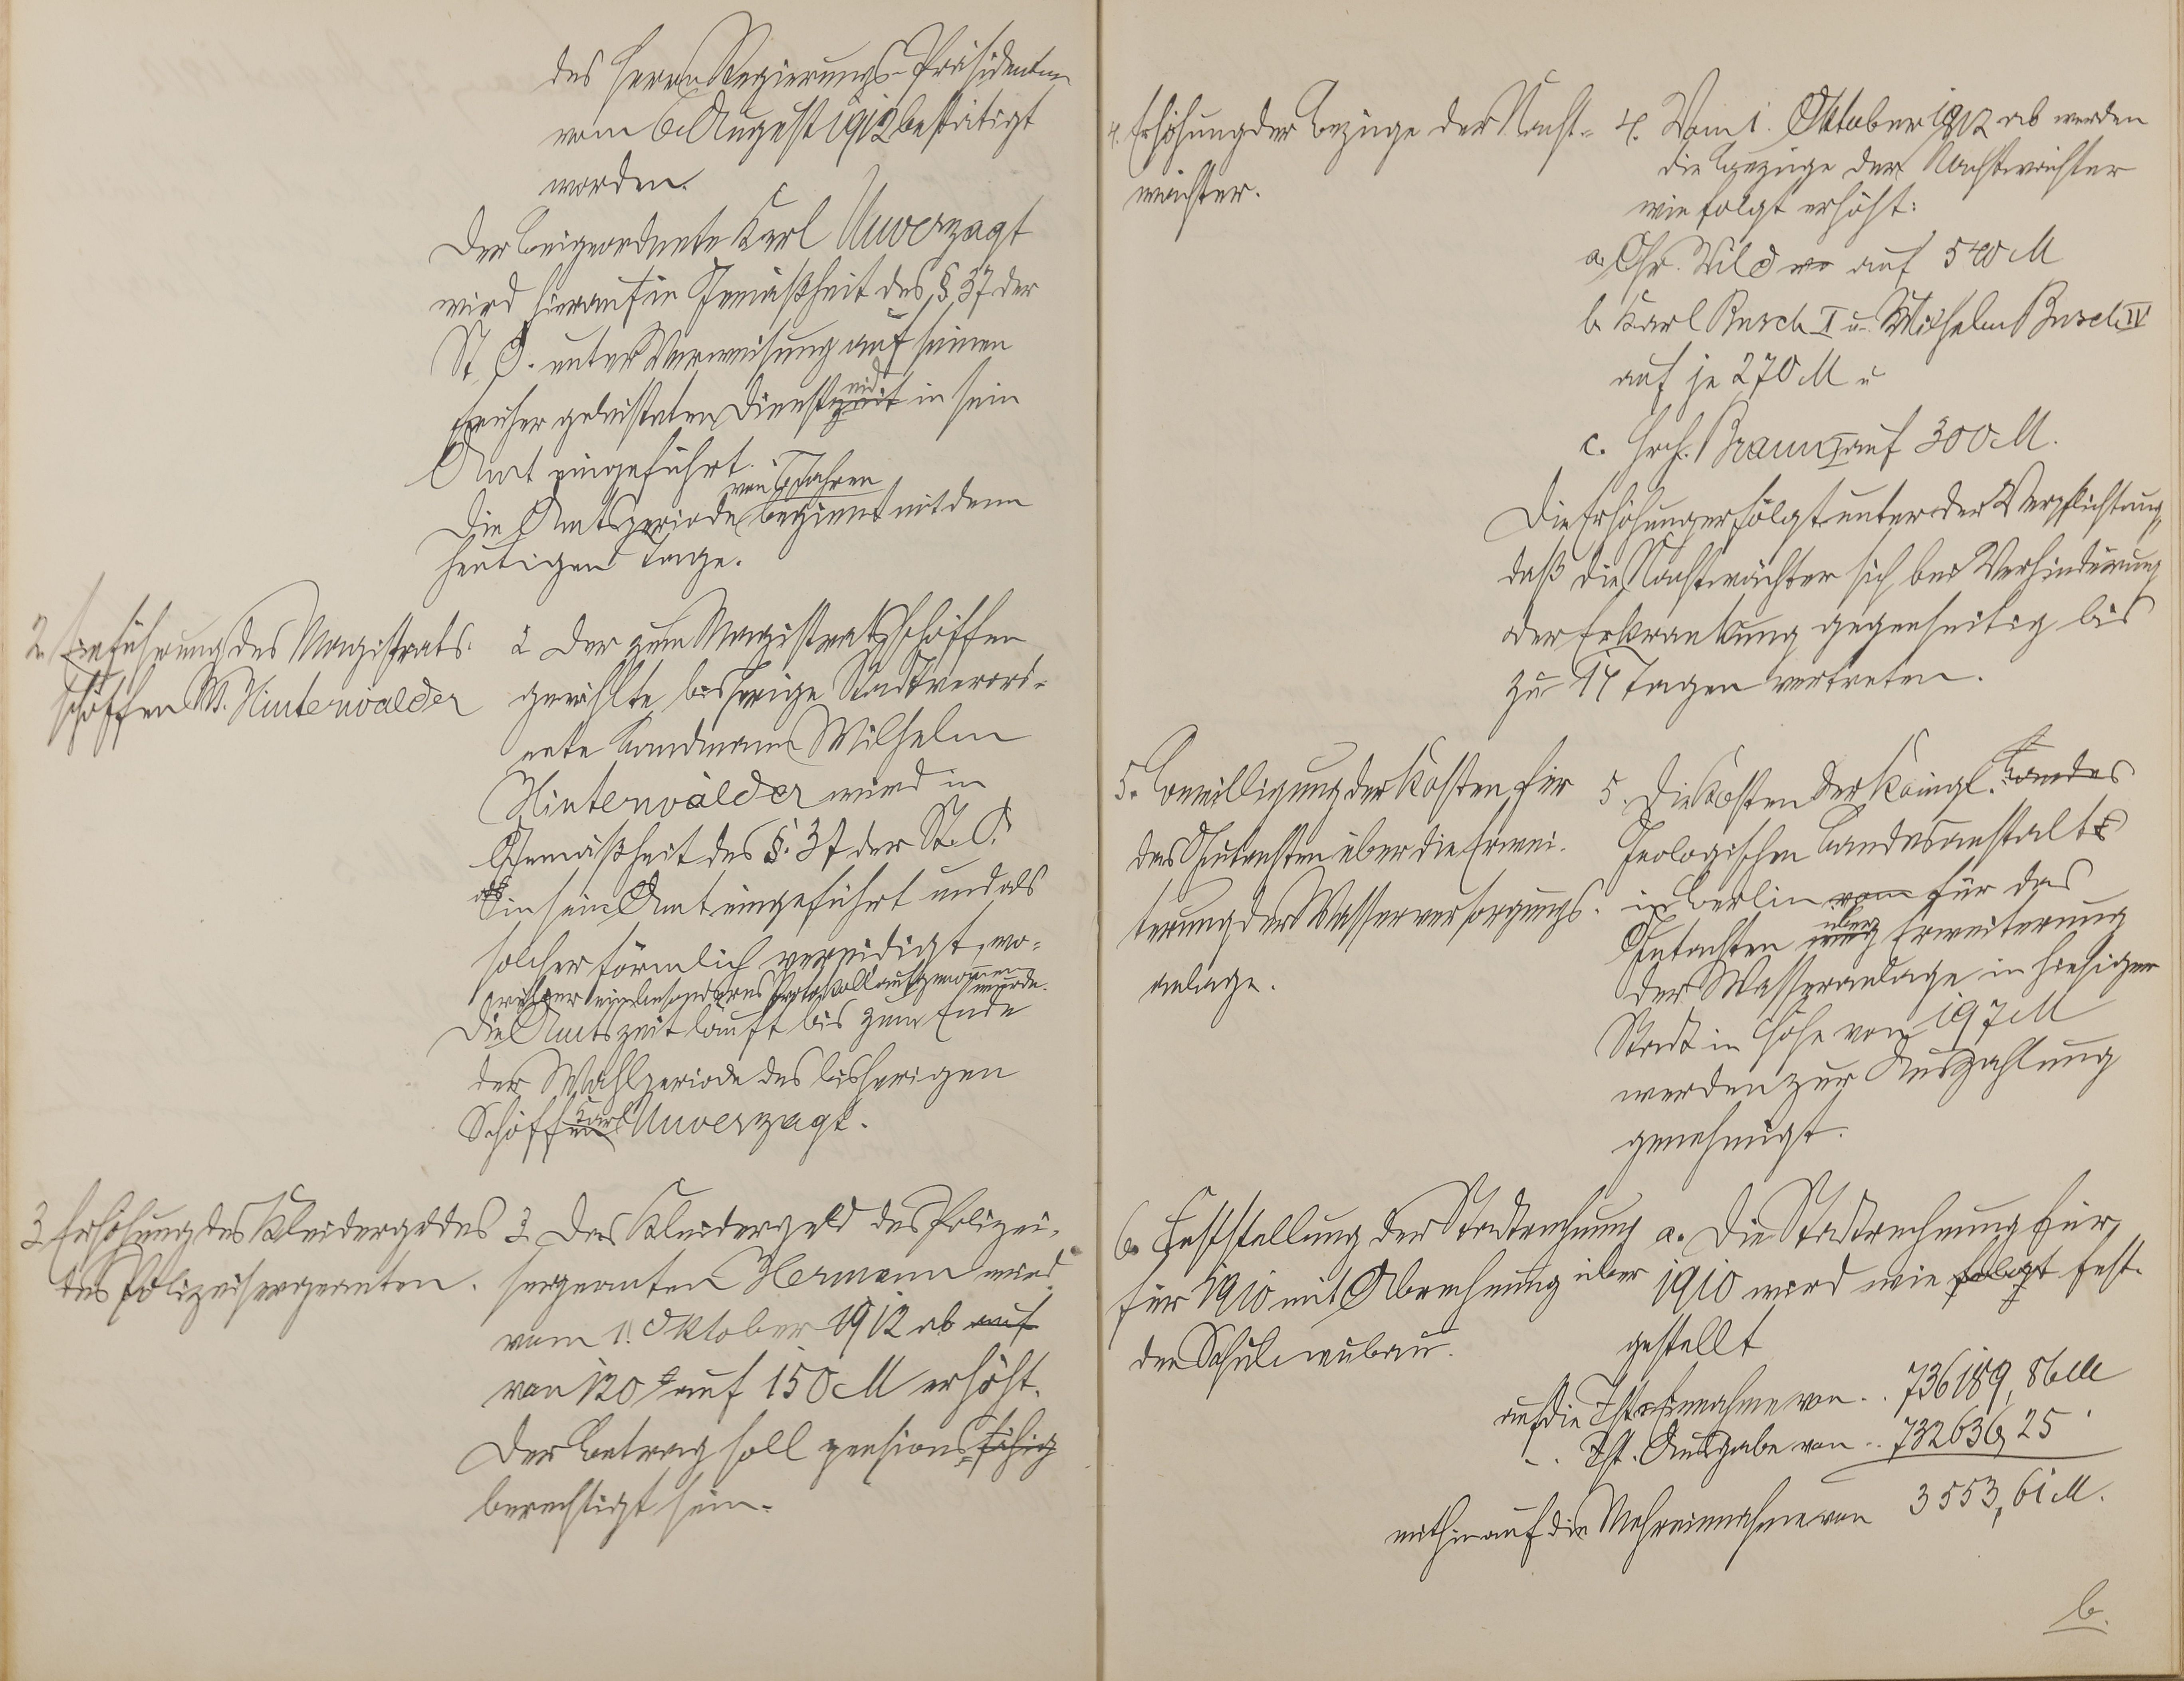 des Herrn Regierungs-Präsidenten
vom 6. August 1912 bestätigt
worden.
Der Beigeordnete Karl Unverzagt
wird hierauf in Gemäßheit des § 37 der
St. O. unter Verweisung auf seinen
früher geleisteten Diensteid in sein
Amt eingeführt.
von Jahren
Die Amtsperiode beginnt mit dem
heutigen Tage.
2. Einführung des Magistrats-
schöffen W. Hinterwälder
2 Der zum Magistratsschöffen
gewählte bisherige Stadtverord-
nete Landmann Wilhelm
Hinterwälder wird in
Gemäßheit des §. 37 der St. O.
in sein Amt eingeführt und als
solcher förmlich vereidigt, wo-
rüber ein besonderes Protokoll aufgenommen
wurde.
Die Amtszeit läuft bis zum Ende
der Wahlperiode des bisherigen
Schöffen Karl Unverzagt.
3 Erhöhung des Kleidergeldes
des Polizeisergeanten.
3. Das Kleidergeld des Polizei-
sergeanten Hermann wird
vom 1. Oktober 1912 ab auf
von 120 auf 150 M erhöht.
Der Betrag soll pensionsfähig
berechtigt sein.
4. Erhöhung der Bezüge der Nacht-
wächter.
4. Vom 1. Oktober 1912 ab werden
die Bezüge der Nachtwächter
wie folgt erhöht:
a. Chr. Wild auf 540 M
b Karl Busch I u. Wilhelm Busch IV
auf je 270 M u
c. Hch. Braun I auf 300 M.
Die Erhöhung erfolgt unter der Verpflichtung,
daß die Nachtwächter sich bei Verhinderung
oder Erkrankung gegenseitig bis
zu 14 Tagen vertreten.
5. Bewilligung der Kosten für
das Gutachten über die Erwei-
terung der Wasserversorgungs-
anlage.
5. Die Kosten der Königl. Landes
Geologischen Landesanstalt
in Berlin vom für das
Gutachten über Erweiterung
der Wasseranlage in hiesiger
Stadt in Höhe von 197 M
werden zur Auszahlung
genehmigt.
6. Feststellung der Stadtrechnung
für 1910 mit Abrechnung über
den Schulneubau.
a. Die Stadtrechnung für
1910 wird wie folgt fest-
gestellt
auf die Ist-Einnahme von .. 736189,86 M
" " Ist-Ausgabe von .. 732636,25 "
mithin auf die Mehreinnahme von 3553,61 M.
b.